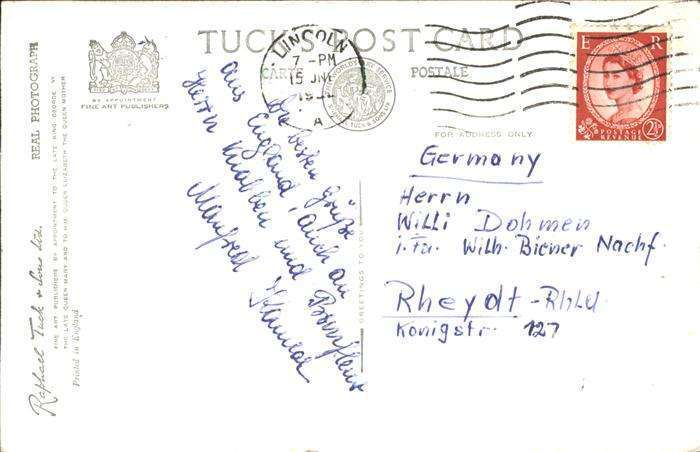 TUCK'S POST CARD
CARTE POSTALE
BY APPOINTMENT
FINE ART PUBLISHERS
REAL PHOTOGRAPH
Raphael Tuck & Sons Ltd.
FINE ART PUBLISHERS BY APPOINTMENT TO THE LATE KING GEORGE VI
THE LATE QUEEN MARY AND TO H.M. QUEEN ELIZABETH THE QUEEN MOTHER
Printed in England
LINCOLN
7 - PM
15 JNE
A
E R
POSTAGE
REVENUE
2½D
FOR ADDRESS ONLY
GREETINGS TO YOU
Die besten Grüße
aus England, auch an
Herrn Knabben und
Manfred
Germany
Herrn
Willi Dohmen
i. Fa. Wilh. Biener Nachf.
Rheydt - Rhld
Königstr. 127